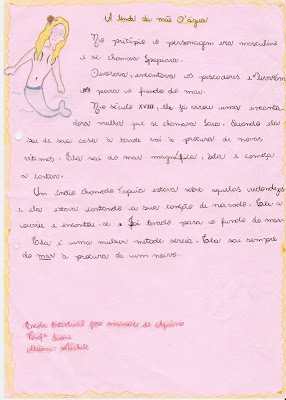 A lenda da mãe D'água
No pricípio o personagem era masculino
e si chamava Ipupiara.
Devorava, encantava os pescadores e levavam
para o fundo do mar.
No século XVIII, ele foi virou uma encanta
dora mulher que se chamava Iara. Quando ela
sai de sua casa a tarde vai a procura de novas
vitimas. Ela sai do mar magnífica, bela e começa
a cantar.
Um índio chamado Tapuia estava sobre aquelas redondezas
e ela estava cantando a sua canção de namoro. Ele a
ouviu e encantou-se e foi levado para o fundo do mar.
Ela é uma mulher metade sereia. Ela sai sempre
do mar à procura de um noivo.
Escola Estadual José de Aquino
Profª
Aluna: